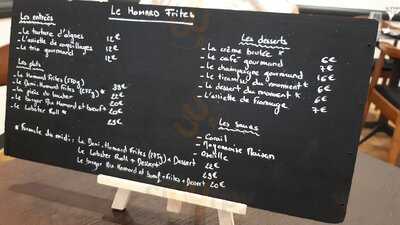 Le Homard Frites
Les entrées
- Le tartare d'algues 12€
- L'assiette de coquillages 12€
- Le trio gourmand 12€
Les plats
- Le Homard Frites (550g) 38€
- Le Demi-Homard Frites (275g)* 22€
- La pièce du boucher 20€
- Le burger Bio Homard et bœuf* 20€
- Le Lobster Roll * 23€
* Formule du midi: Le Demi-Homard Frites (275g) + Dessert 22€
Le Lobster Roll + Dessert 23€
Le burger Bio Homard et bœuf + Frites + Dessert 20€
Les desserts
- La crème brulée 6€
- Le café gourmand 7€
- Le champagne gourmand 16€
- Le tiramisu du moment* 6€
- Le dessert du moment* 6€
- L'assiette de fromage 7€
Les sauces
- Corail
- Mayonnaise Maison
- Oseille